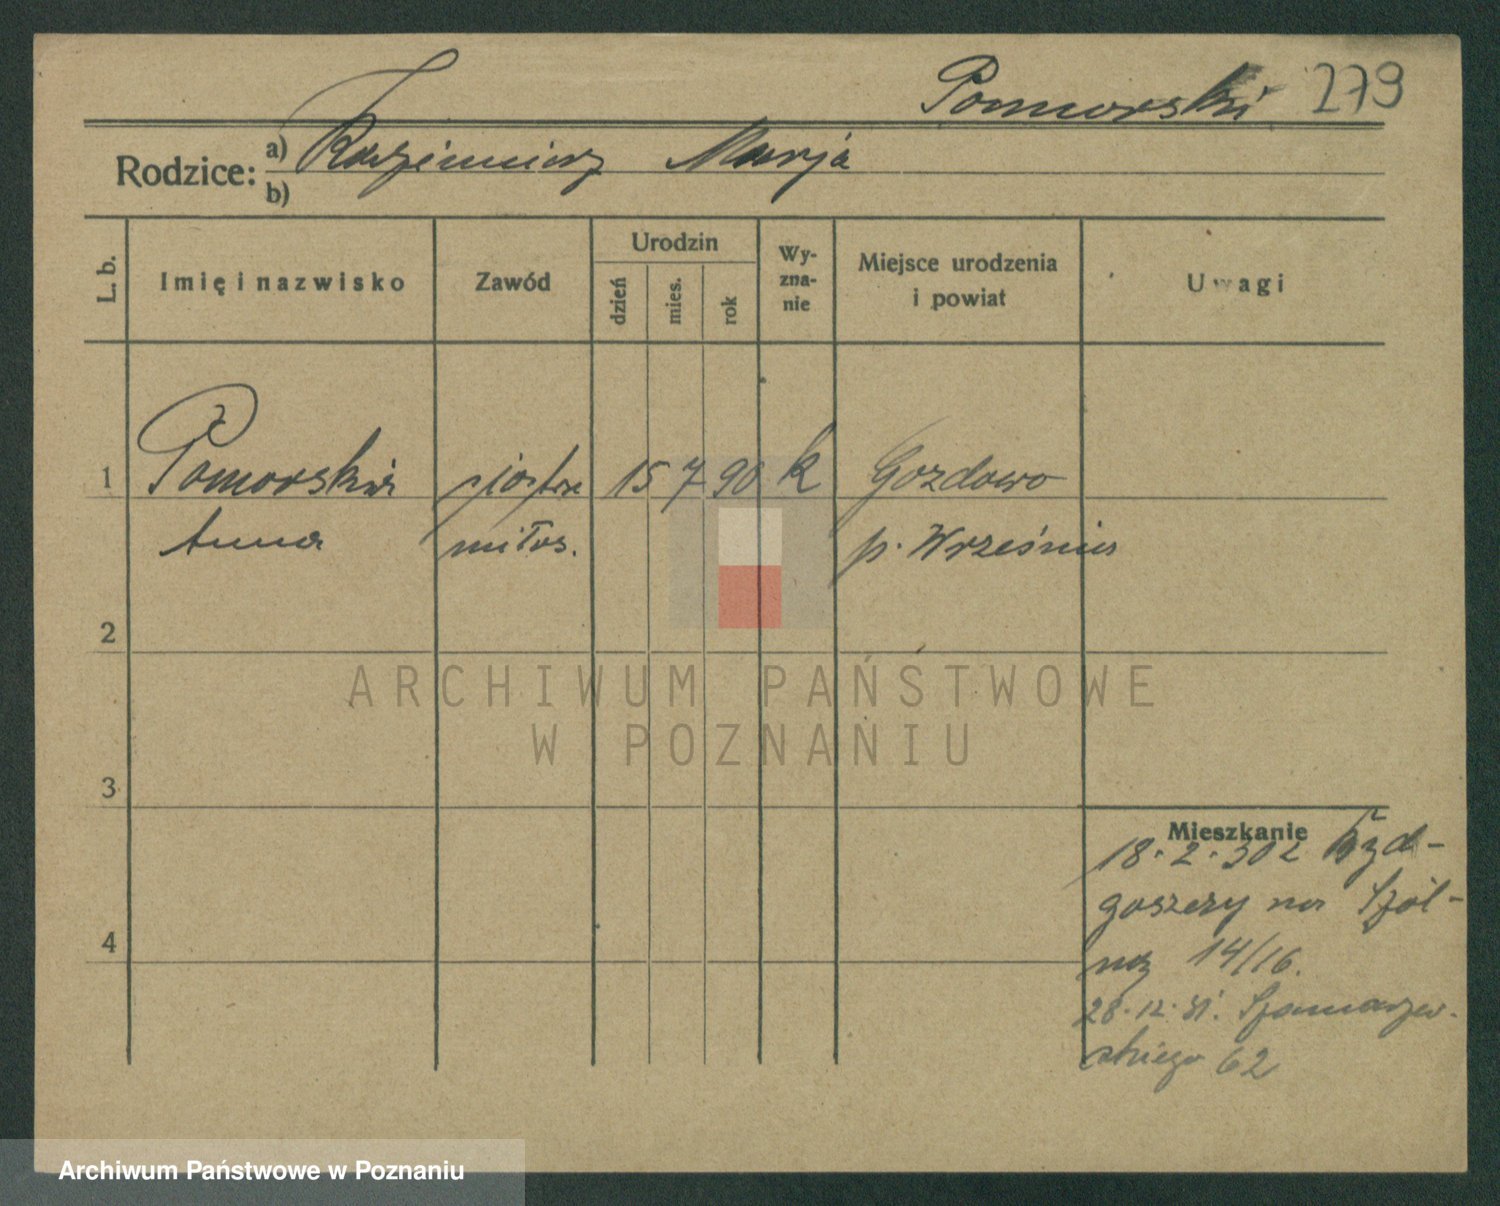 Pomorski 279
Rodzice: a) Kazimierz Marja
b)
L. b. Imię i nazwisko Zawód Urodzin dzień mies. rok Wy-zna-nie Miejsce urodzenia i powiat Uwagi
1 Pomorska siostra 15 7 90 k Gozdowo
Anna miłos. p. Września
2
ARCHIWUM PAŃSTWOWE
W POZNANIU
3
Mieszkanie
18.2.30 z Byd-
goszczy na Szkol-
ną 14/16.
4
28.12.31. Szamarzew-
skiego 62
Archiwum Państwowe w Poznaniu